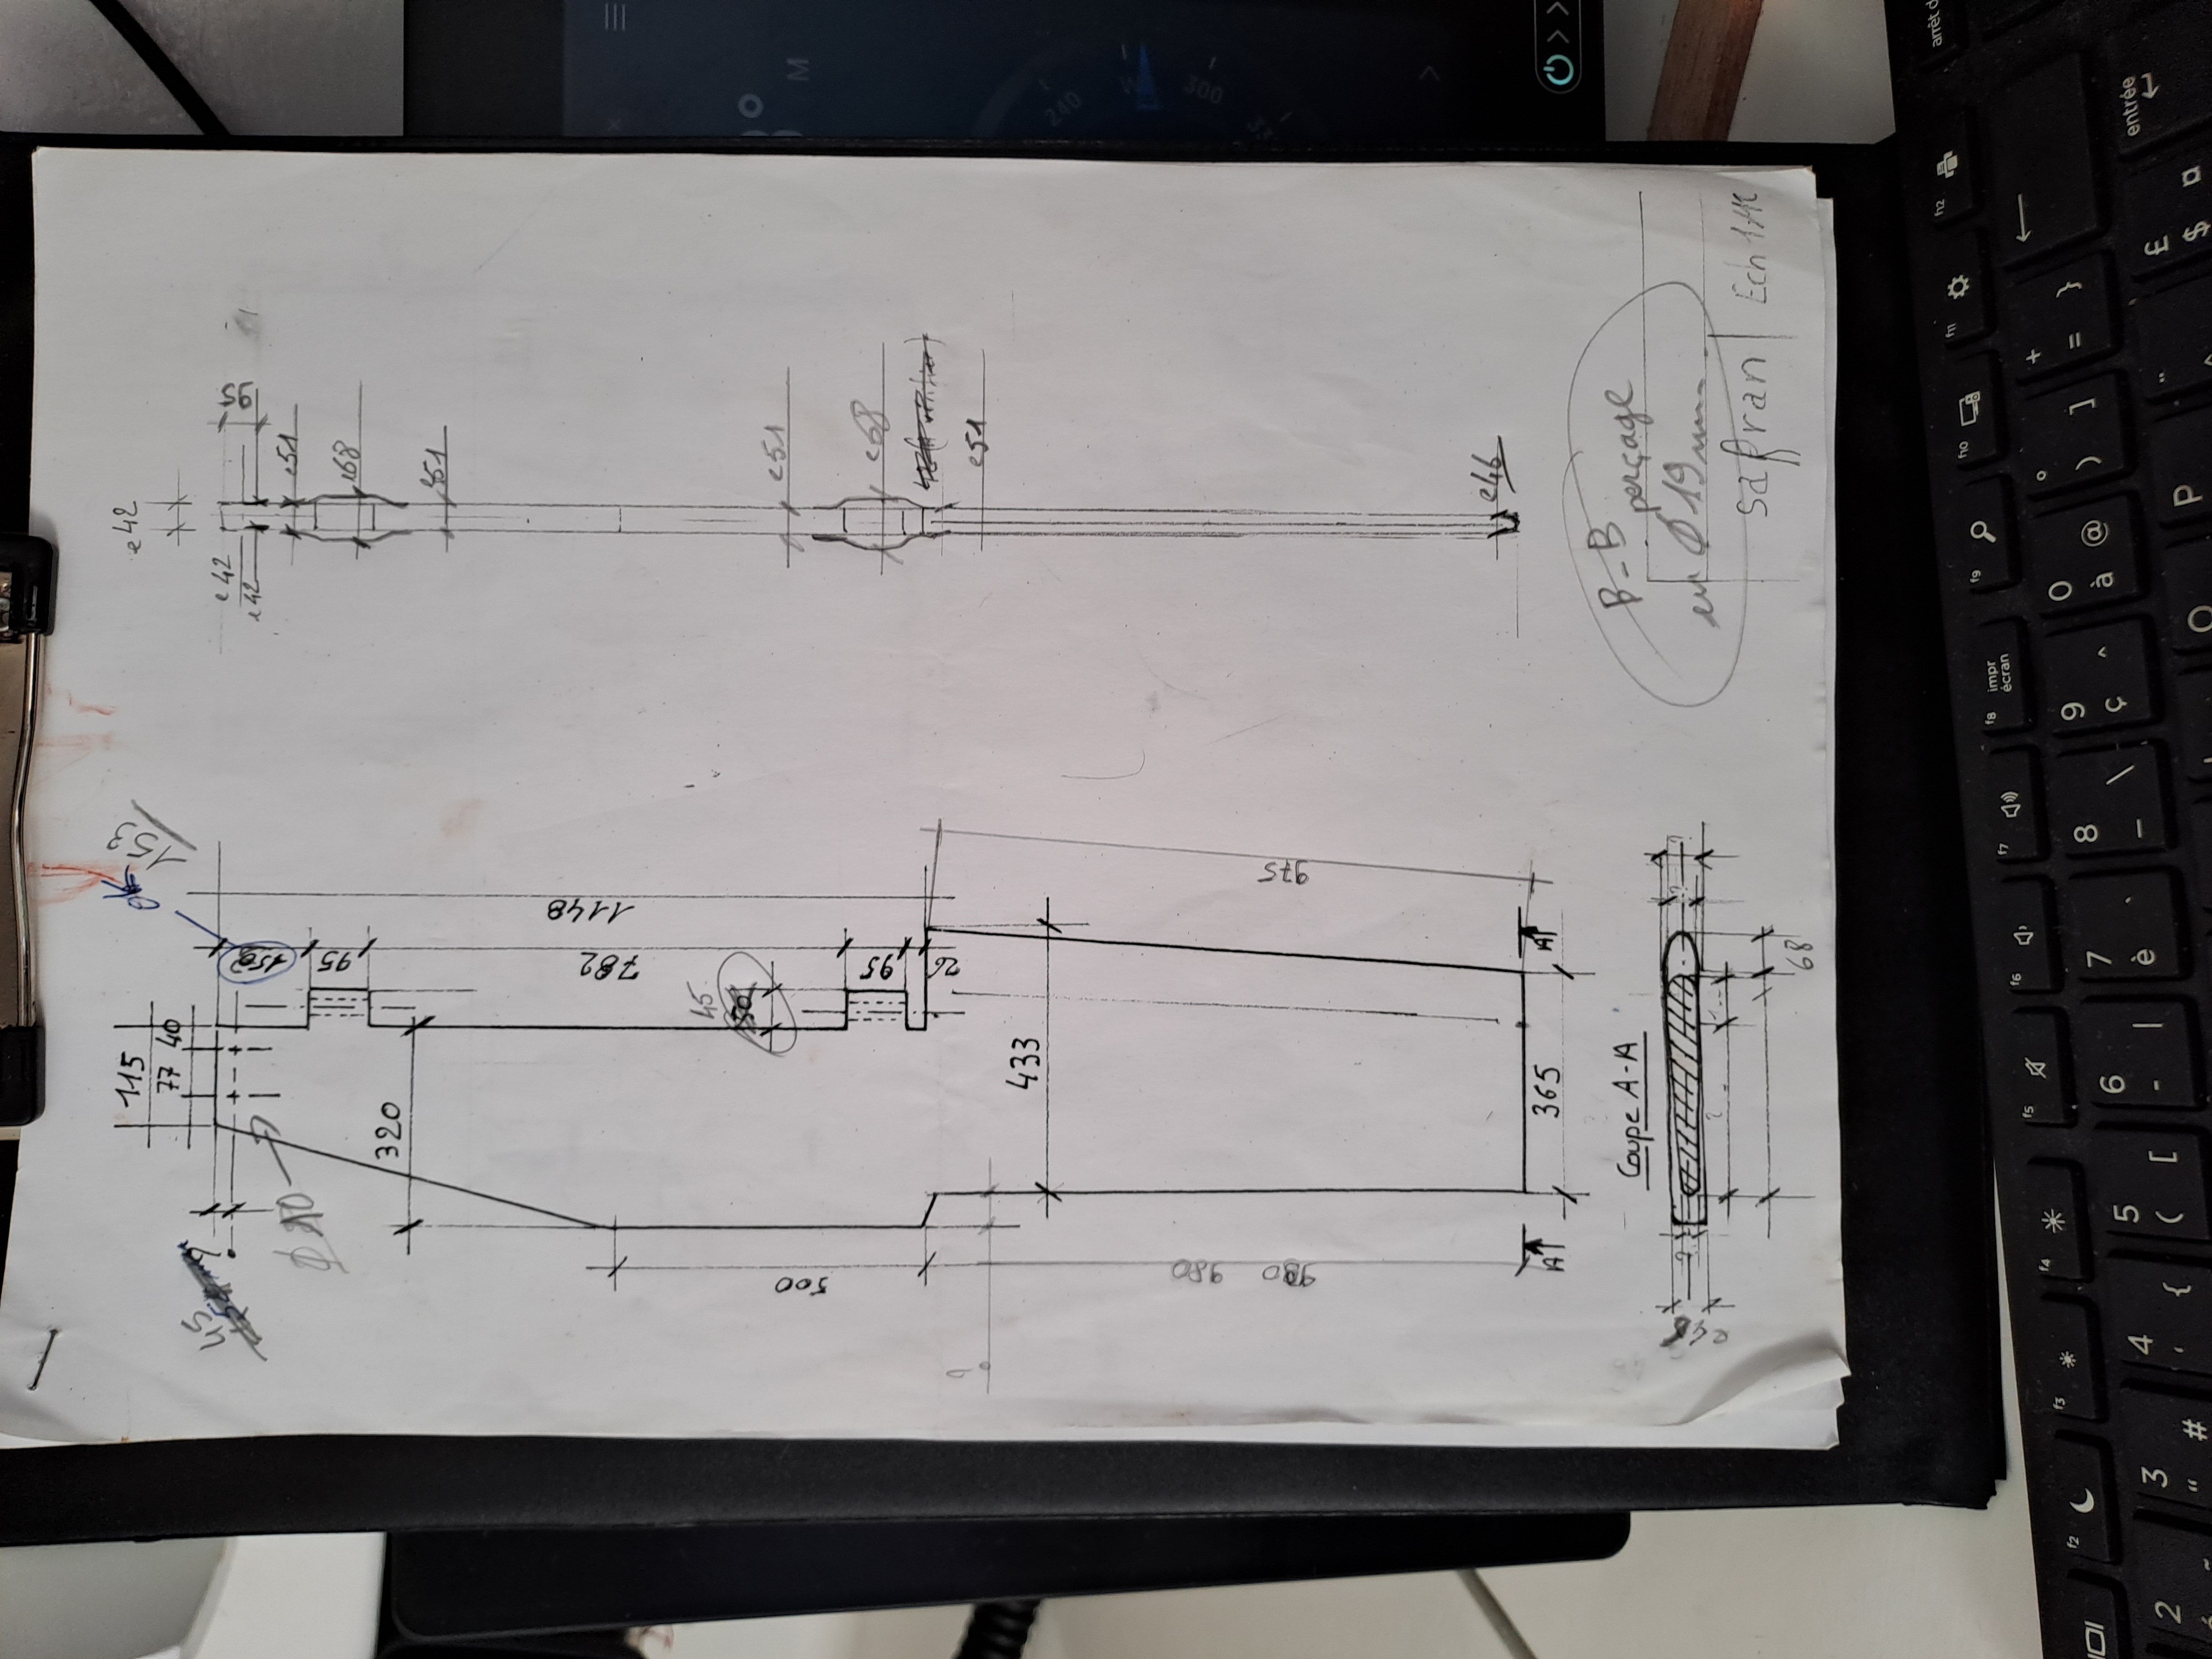 115
77 40
ok
153
45
?
Ø 10
95
320
782
1148
45
500
95
26
?
433
980
975
365
A
A
Coupe A-A
e46
?
?
?
?
68
e42
e42
e42
95
e51
e68
e51
e51
e68
e51
e46
B-B
perçage
en Ø 19 mm
safran
Ech 1/10
M
240
300
f2
f3
f4
f5
f6
f7
f8 impr écran
f9
f10
f11
f12
arrêt d
2
3 " #
4 ' {
5 ( [
6 - |
7 è `
8 _ \
9 ç ^
0 à @
° ) ]
+ = }
entrée
O
P
£ $ ¤